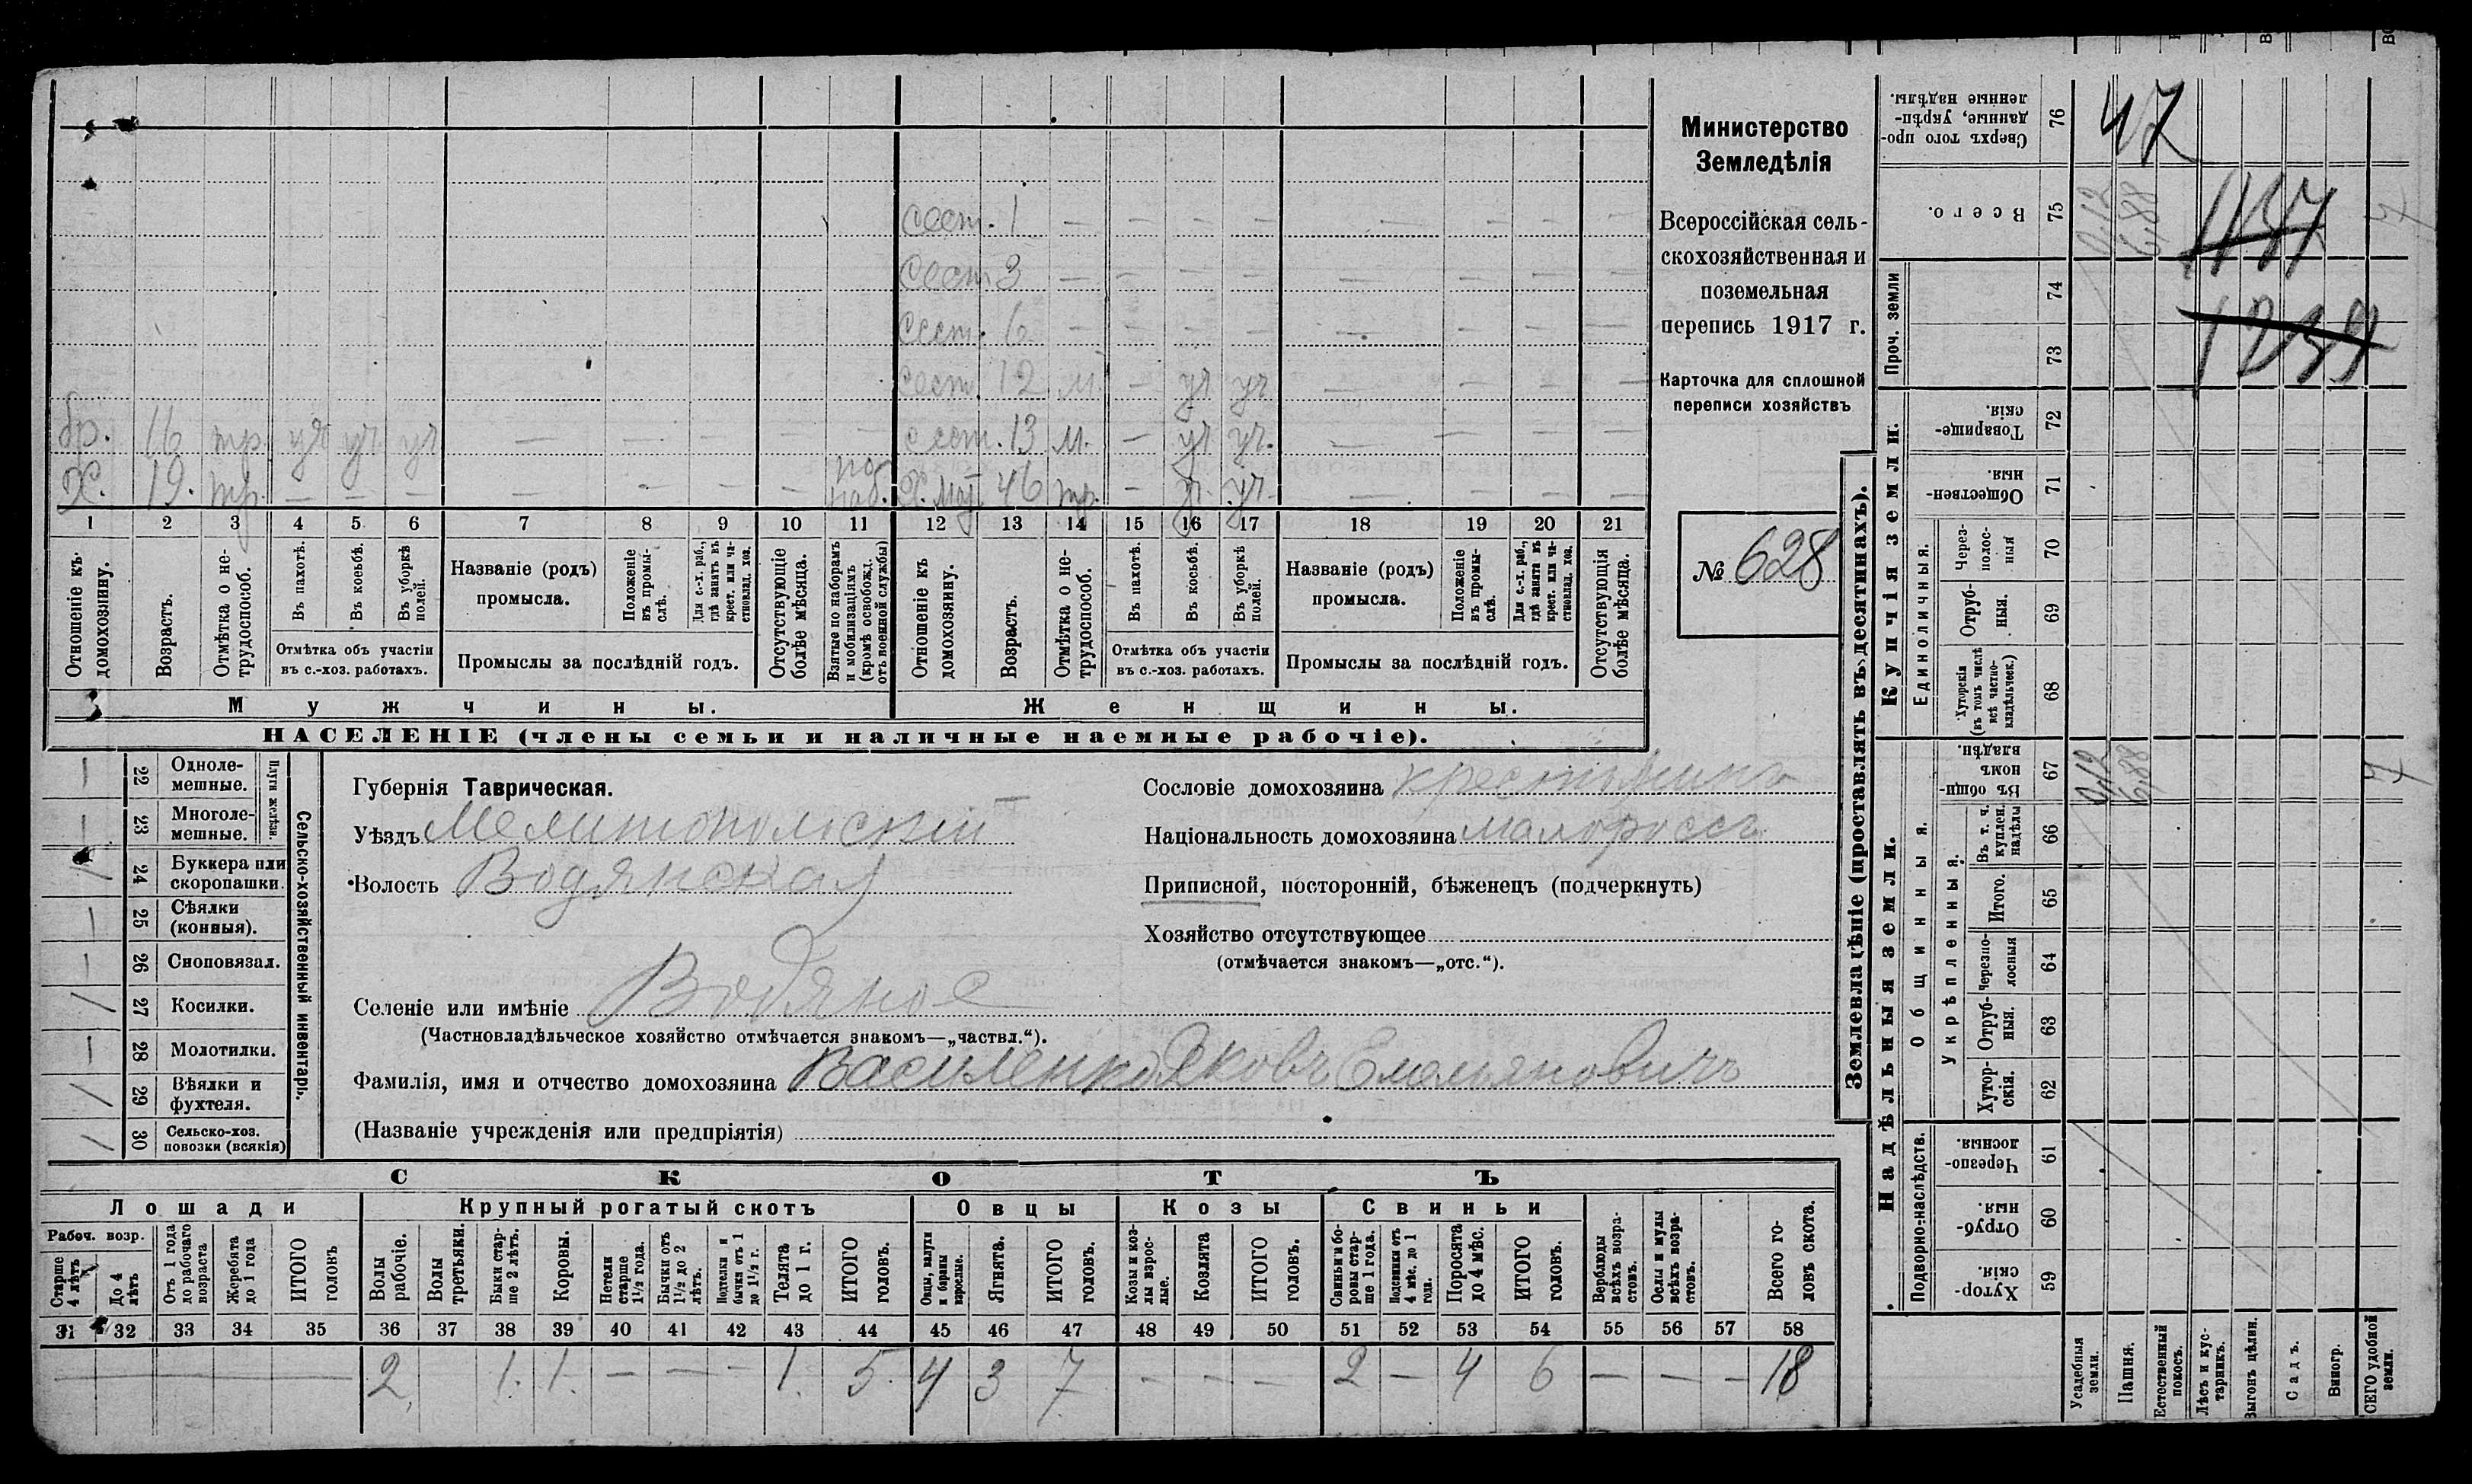 Министерство
Земледѣлія
Всероссійская сель-
скохозяйственная и
поземельная
перепись 1917 г.
Карточка для сплошной
переписи хозяйствъ
№ 628
сест. 1 — — — — — — — —
сест. 3 — — — — — — — —
сест. 6 — — — — — — — —
сест. 12 м. — уч уч — — — —
бр. 16 тр. уч уч уч — — — — сест. 13 м. — уч уч. — — — —
Х. 19. тр. — — — — — — — по наб. Х. мат. 46 тр. — уч. уч. — — — —
1 2 3 4 5 6 7 8 9 10 11 12 13 14 15 16 17 18 19 20 21
Отношеніе къ домохозяину.
Возрастъ.
Отмѣтка о не-трудоспособ.
Въ пахотѣ.
Въ косьбѣ.
Въ уборкѣ полей.
Отмѣтка объ участіи въ с.-хоз. работахъ.
Названіе (родъ) промысла.
Положеніе въ промы-слѣ.
Для с.-х. раб., гдѣ занятъ въ крест. или ча-стновлад. хоз.
Промыслы за послѣдній годъ.
Отсутствующіе болѣе мѣсяца.
Взятые по наборамъ и мобилизаціямъ (кромѣ освобожд. отъ военной службы)
Отношеніе къ домохозяину.
Возрастъ.
Отмѣтка о не-трудоспособ.
Въ пахотѣ.
Въ косьбѣ.
Въ уборкѣ полей.
Отмѣтка объ участіи въ с.-хоз. работахъ.
Названіе (родъ) промысла.
Положеніе въ промы-слѣ.
Для с.-х. раб., гдѣ занята въ крест. или ча-стновлад. хоз.
Промыслы за послѣдній годъ.
Отсутствующія болѣе мѣсяца.
Мужчины. Женщины.
НАСЕЛЕНІЕ (члены семьи и наличные наемные рабочіе).
Сельско-хозяйственный инвентарь.
Плуги желѣзн.
22 Однолемешные. —
23 Многолемешные. —
24 Буккера или скоропашки. /
25 Сѣялки (конныя). —
26 Сноповязал. —
27 Косилки. /
28 Молотилки. —
29 Вѣялки и фухтеля. /
30 Сельско-хоз. повозки (всякія) /
Губернія Таврическая.
Уѣздъ Мелитопольскій
Волость Водянская
Селеніе или имѣніе Водяное
(Частновладѣльческое хозяйство отмѣчается знакомъ—„частвл.“).
Фамилія, имя и отчество домохозяина Василенко Яковъ Емельяновичъ
(Названіе учрежденія или предпріятія)
Сословіе домохозяина крестьянинъ
Національность домохозяина малороссъ
Приписной, посторонній, бѣженецъ (подчеркнуть)
Хозяйство отсутствующее
(отмѣчается знакомъ—„отс.“).
СКОТЪ
Лошади Крупный рогатый скотъ Овцы Козы Свиньи
Рабоч. возр.
Старше 4 лѣтъ
До 4 лѣтъ
Отъ 1 года до рабочаго возраста
Жеребята до 1 года
ИТОГО головъ
Волы рабочіе.
Волы третьяки.
Быки стар-ше 2 лѣтъ.
Коровы.
Нетели старше 1½ года.
Бычки отъ 1½ до 2 лѣтъ.
Подтелки и бычки отъ 1 до 1½ г.
Телята до 1 г.
ИТОГО головъ.
Овцы, валухи и бараны взрослые.
Ягнята.
ИТОГО головъ.
Козы и коз-лы взрос-лые.
Козлята
ИТОГО головъ.
Свиньи и бо-ровы стар-ше 1 года.
Подсвинки отъ 4 мѣс. до 1 года.
Поросята до 4 мѣс.
ИТОГО головъ.
Верблюды всѣхъ возра-стовъ.
Ослы и мулы всѣхъ возра-стовъ.
Всего го-ловъ скота.
31 32 33 34 35 36 37 38 39 40 41 42 43 44 45 46 47 48 49 50 51 52 53 54 55 56 57 58
— 2 1. 1. — — — 1. 5. 4 3 7 — — — 2 — 4 6 — — — 18
Землевладѣніе (проставлять въ десятинахъ).
Купчія земли.
Надѣльныя земли.
Сверхъ того про-данные, укрѣп-ленные надѣлы. 76 47
Всего. 75 0,12 6,88 7
Проч. земли 74 73
Товарище-скія. 72
Обществен-ныя 71
Единоличныя.
Через-полос-ныя 70
Отруб-ныя. 69
Хуторскія (въ томъ числѣ всѣ частно-владѣльческ.) 68
Общинныя.
Въ общи-номъ владѣн. 67 0,12 6,88 7
Укрѣпленныя.
Въ т. ч. куплен. надѣлы 66
Итого. 65
Черезпо-лосныя 64
Отруб-ныя. 63
Хутор-скія. 62
Подворно-наслѣдств.
Черезпо-лосныя 61
Отруб-ныя 60
Хутор-скія. 59
Усадебныя земли.
Пашня.
Естественный покосъ.
Лѣсъ и кус-тарникъ.
Выгонъ цѣлин.
Садъ.
Виногр.
СЕГО удобной земли.